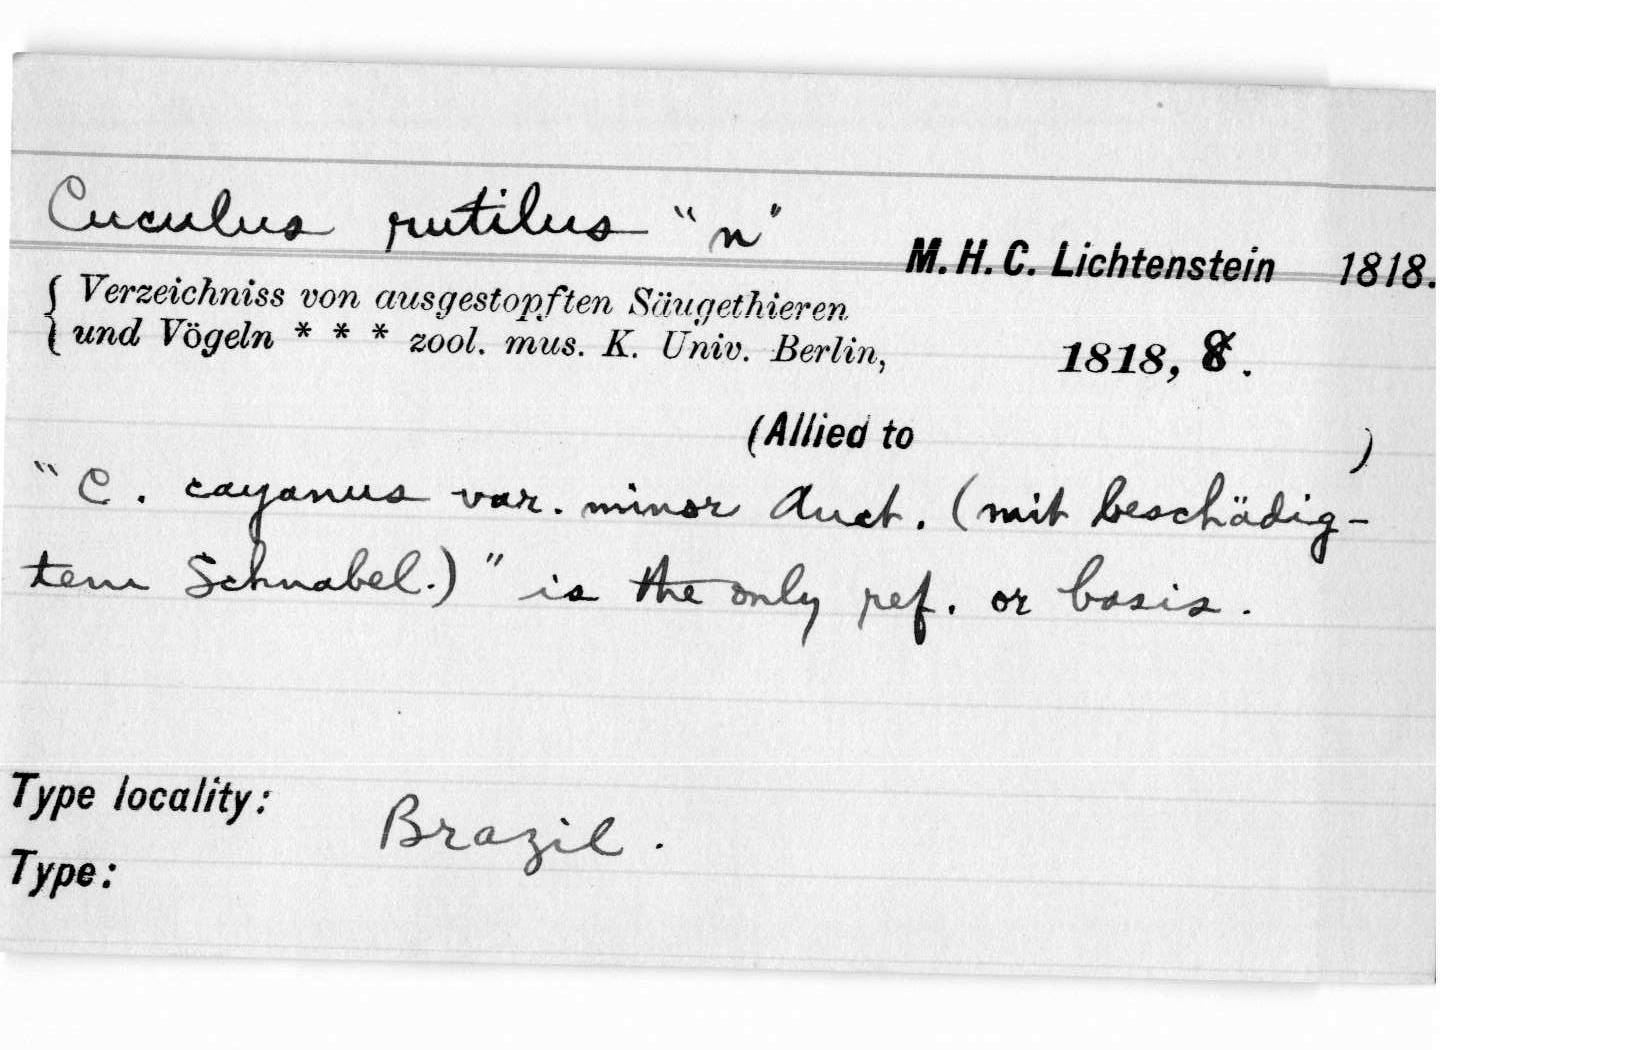 Cuculus rutilus "n"
M. H. C. Lichtenstein 1818.
{ Verzeichniss von ausgestopften Säugethieren
{ und Vögeln * * * zool. mus. K. Univ. Berlin, 1818, 8.
(Allied to )
"C. cayanus var. minor Auct. (mit beschädig-
tem Schnabel.)" is the only ref. or basis.
Type locality: Brazil.
Type: